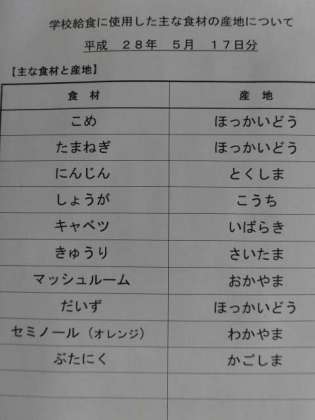 学校給食に使用した主な食材の産地について
平成 28年 5月 17日分
【主な食材と産地】
食 材 産 地
こめ ほっかいどう
たまねぎ ほっかいどう
にんじん とくしま
しょうが こうち
キャベツ いばらき
きゅうり さいたま
マッシュルーム おかやま
だいず ほっかいどう
セミノール（オレンジ） わかやま
ぶたにく かごしま